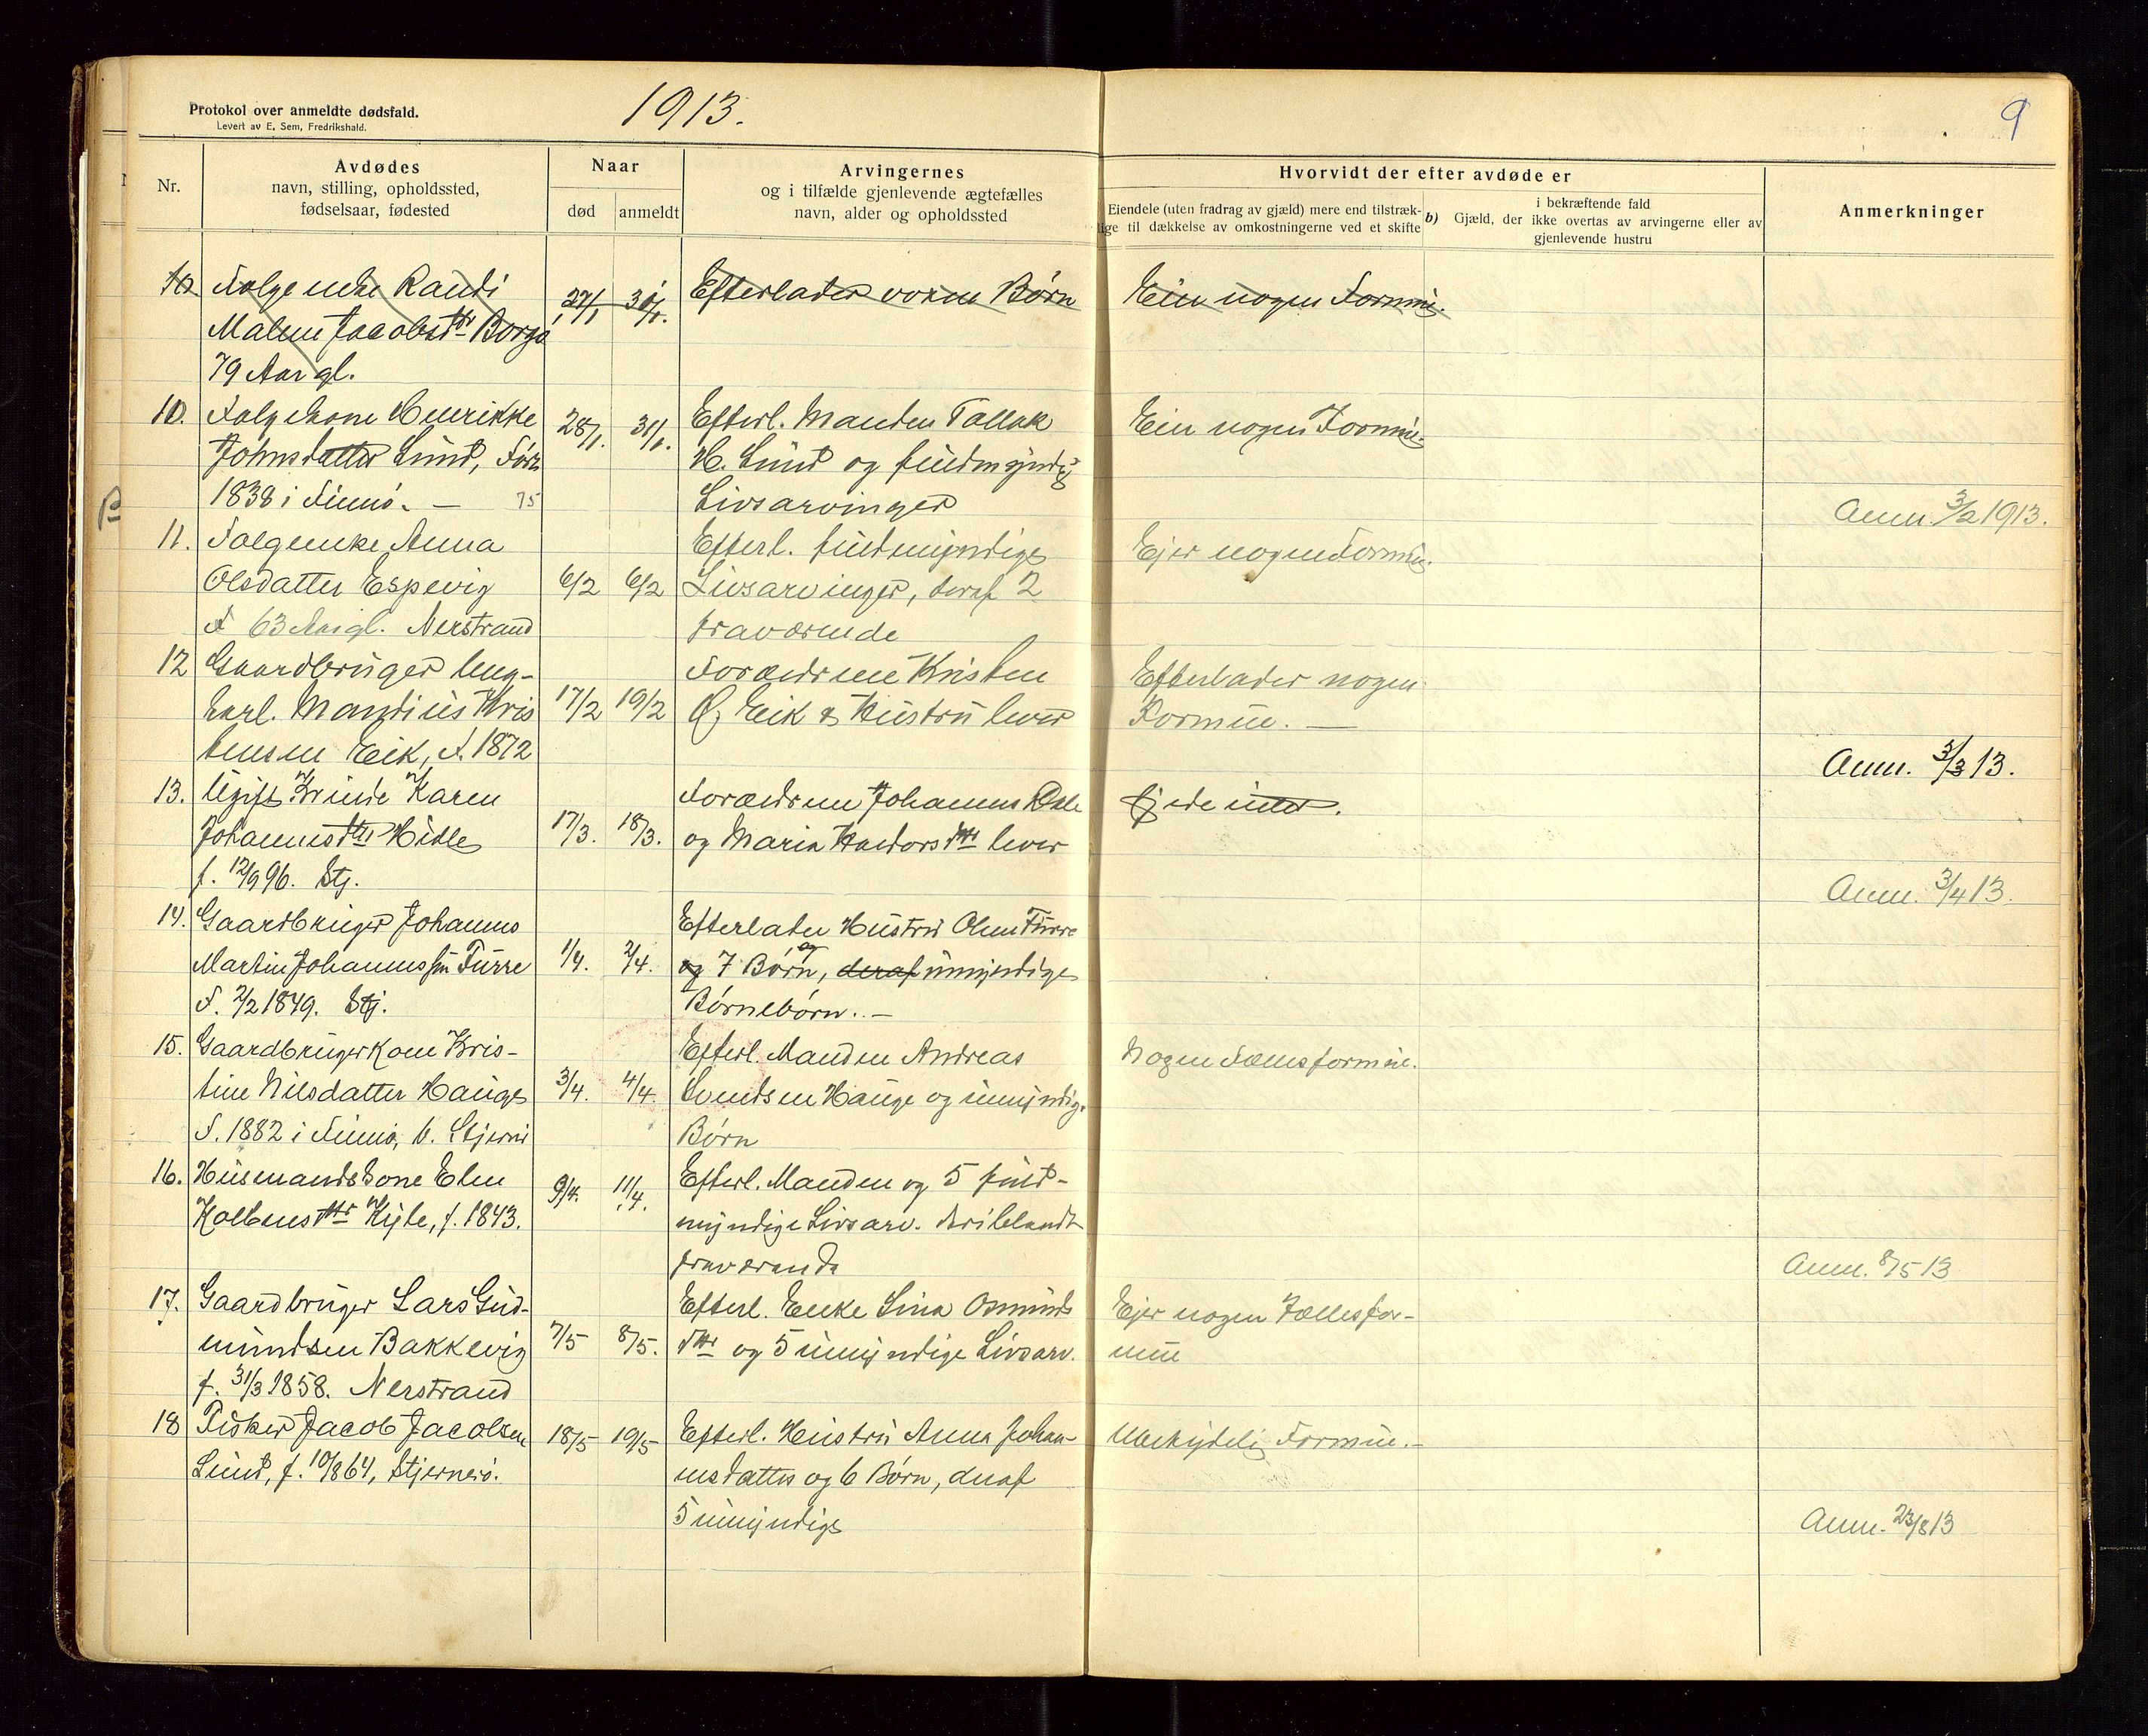 Protokol over anmeldte dødsfald.
Levert av E. Sem, Fredrikshald.
1913.
9
Nr.
Avdødes
navn, stilling, opholdssted,
fødselsaar, fødested
Naar
død
anmeldt
Arvingernes
og i tilfælde gjenlevende ægtefælles
navn, alder og opholdssted
Hvorvidt der efter avdøde er
Eiendele (uten fradrag av gjæld) mere end tilstræk-
lige til dækkelse av omkostningerne ved et skifte
b)
i bekræftende fald
Gjæld, der ikke overtas av arvingerne eller av
gjenlevende hustru
Anmerkninger
10 Folgeenke Randi 27/1 Efterlader voxne Børn Eier nogen Formue.
Malene Jacobsdtr Borgø
79 Aar gl.
10. Folgekone Henrikke 28/1. 31/1. Efterl. Manden Tallak Eier nogen Formue.
Johnsdatter Lund, Født H. Lund og fuldmyndige
1838 i Finnø. — 75 Livsarvinger
Anm. 3/2 1913.
11. Folgeenke Anna Efterl. fuldmyndige Ejer nogen Formue.
Olsdatter Espevig 6/2 6/2 Livsarvinger, deraf 2
F 63 Aar gl. Nerstrand fraværende
12 Gaardbruger Ung- Forældrene Kristen Efterlader nogen
karl. Mandius Kris 17/2 19/2 Ø. Eik & Hustru lever Formue. —
tensen Eik, f. 1872
Anm. 3/3 13.
13. Ugift Kvinde Karen Forældrene Johannes Dale Ejede intet.
Johannesdtr Hidle 17/3. 18/3. og Maria Haldorsdtr lever
f. 12/9 96. Stj.
Anm. 3/4 13.
14. Gaardbruger Johannes Efterlader Hustru Olene Furre
Martin Johannessen Furre 1/4. 2/4. og 7 Børn, og deraf umyndige
F. 2/2 1849. Stj. Børnebørn. —
15. Gaardbrugerkone Kris- Efterl. Manden Andreas Nogen Fællesformue.
tine Nilsdatter Hauge 3/4. 4/4. Svendsen Hauge og umyndige
F. 1882 i Finnø, b. Stjernø Børn
16. Husmandskone Elen 9/4. 11/4. Efterl. Manden og 5 fuld-
Kolbensdtr Kyle, f. 1843. myndige Livsarv. deriblandt
fraværende
Anm. 8/5 13
17. Gaardbruger Lars Gud- Efterl. Enke Lina Osmunds Ejer nogen Fællesfor-
mundsen Bakkevig 7/5 8/5. dtr og 5 umyndige Livsarv. mue
f. 31/3 1858. Nerstrand
18 Fisker Jacob Jacobsen 18/5 19/5 Efterl. Hustru Anna Johan- Ubetydelig Formue. —
Lund, f. 10/8 64, Stjernerø. nesdatter og 6 Børn, deraf
5 umyndige
Anm. 23/8 13